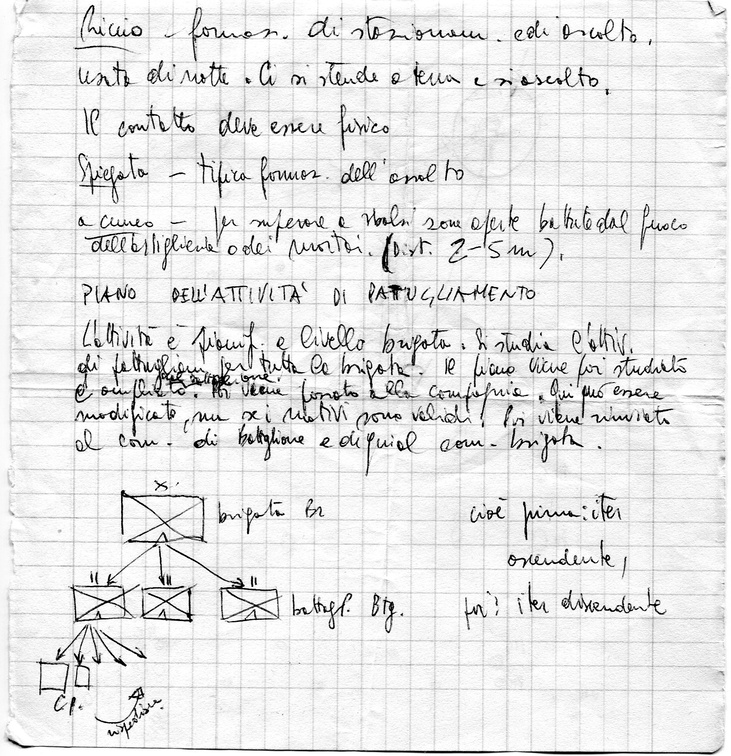 Riccio - formaz. di stazionam. e di ascolto,
usata di notte. Ci si stende a terra e si ascolta.
Il contatto deve essere fisico
Spiegata - tipica formaz. dell'assalto
a cuneo - per superare a sbalzi zone aperte battute dal fuoco
dell'artiglieria o dei mortai. (Dist. 2-5 m).
PIANO DELL'ATTIVITÀ DI PATTUGLIAMENTO
L'attività è pianif. a livello brigata. Si studia l'attiv.
di pattugliam. per tutta la brigata. Il piano viene poi studiato
e ampliato. Poi viene passato alla compagnia. Qui può essere
modificato, ma se i motivi sono validi. Poi viene rinviato
al com. di battaglione e di qui al com. brigata.
X
brigata Br
cioè prima: iter
ascendente,
II II II
battagl. Btg.
poi: iter discendente
Cp.